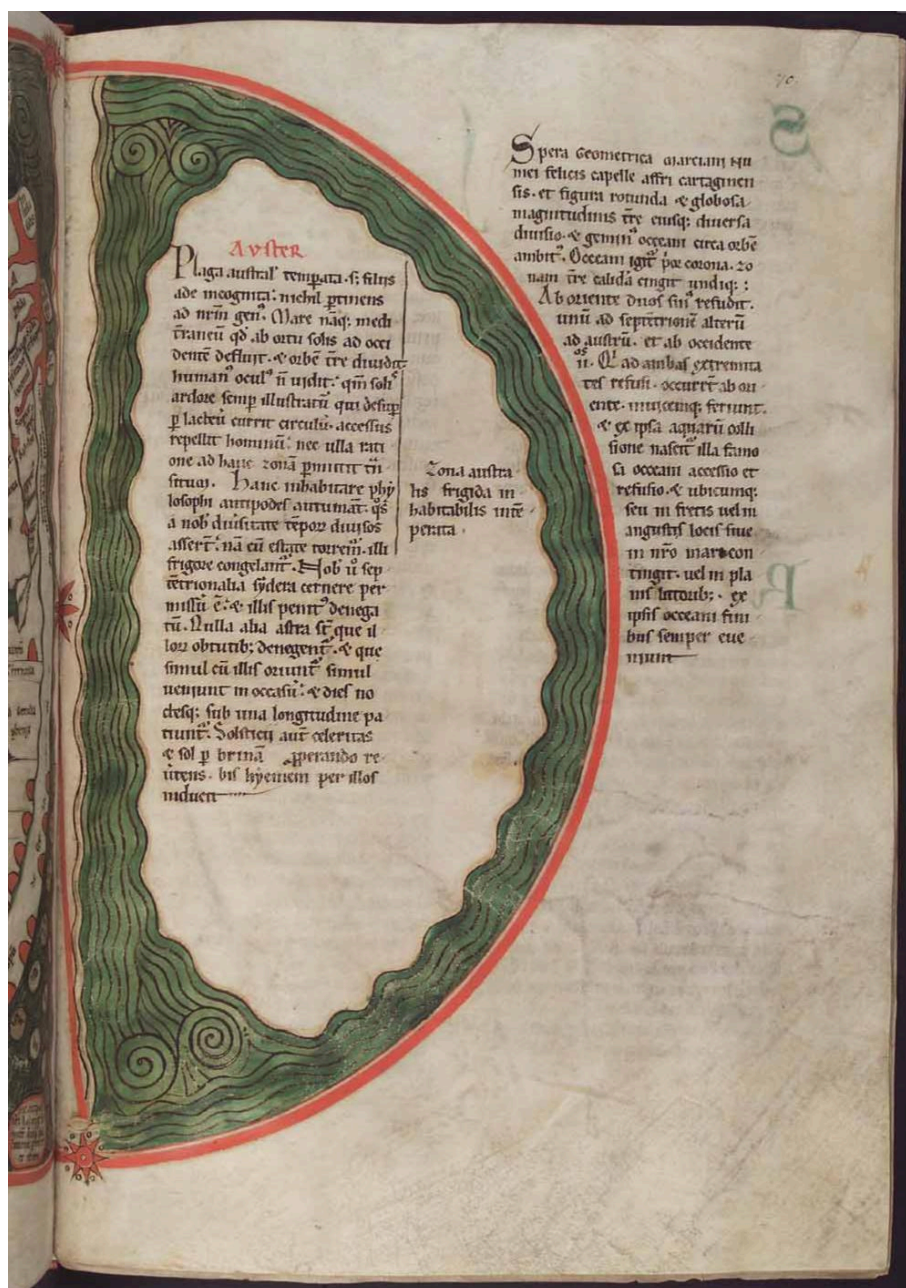 70
Auster
Plaga austral' temperata. s; filiis
ade incognita. nichil ptinens
ad nrm gen⁹. Mare nāq; medi
traneū qd̄ ab ortu solis ad occi
dentē defluit. & orbē tre diuidit
human⁹ ocul⁹ n̄ uidit. qm̄ solis
ardore semp illustratū qui desup
p lacteū currit circulū. accessus
repellit hominū. nec ulla rati
one ad hanc zonā pmittit tn̄
situm. Hanc inhabitare phy
losophi antipodes autumāt. qs̄
a nob diuersitate tēpor diuisos
assert. nā cū estate torrem̄. illi
frigore congelant. Nob ū sep
tētrionalia sydera cernere per
missū ē. & illis penit⁹ denega
tū. Nulla alia astra st̄ que il
lor obtutib; denegent. & que
simul cū illis oriunt simul
ueniunt in occasū. & dies no
ctesq; sub una longitudine pa
tiunt. Solsticii aut celeritas
& sol p brinā pperando re
utens. bis hyemem per illos
inducit
Zona austra
lis frigida in
habitabilis intē
perata.
Spera Geometrica Marciani Mu
mei felicis capelle affri cartaginen
sis. et figura rotunda & globosa
magnitudinis tre eiusq; diuersa
diuisio. & gemin⁹ occeani circa orbē
ambit⁹. Occeani igit por corona. zo
nam tre calidā cingit undiq;:
Ab oriente duos sin⁹ refudit.
unū ad septētrionē alterū
ad austrū. et ab occidente
ii. os Qi ad ambas extremita
tes refusi. occurrēt ab ori
ente. inuicemq; feriunt.
& ex ipsa aquarū colli
sione nascit illa famo
sa occeani accessio et
refusio. & ubicumq;
seu in fretis uel in
angustis locis siue
in nrō mare con
tingit. uel in pla
nis litorib;. ex
ipsis occeani fini
bus semper eue
niunt